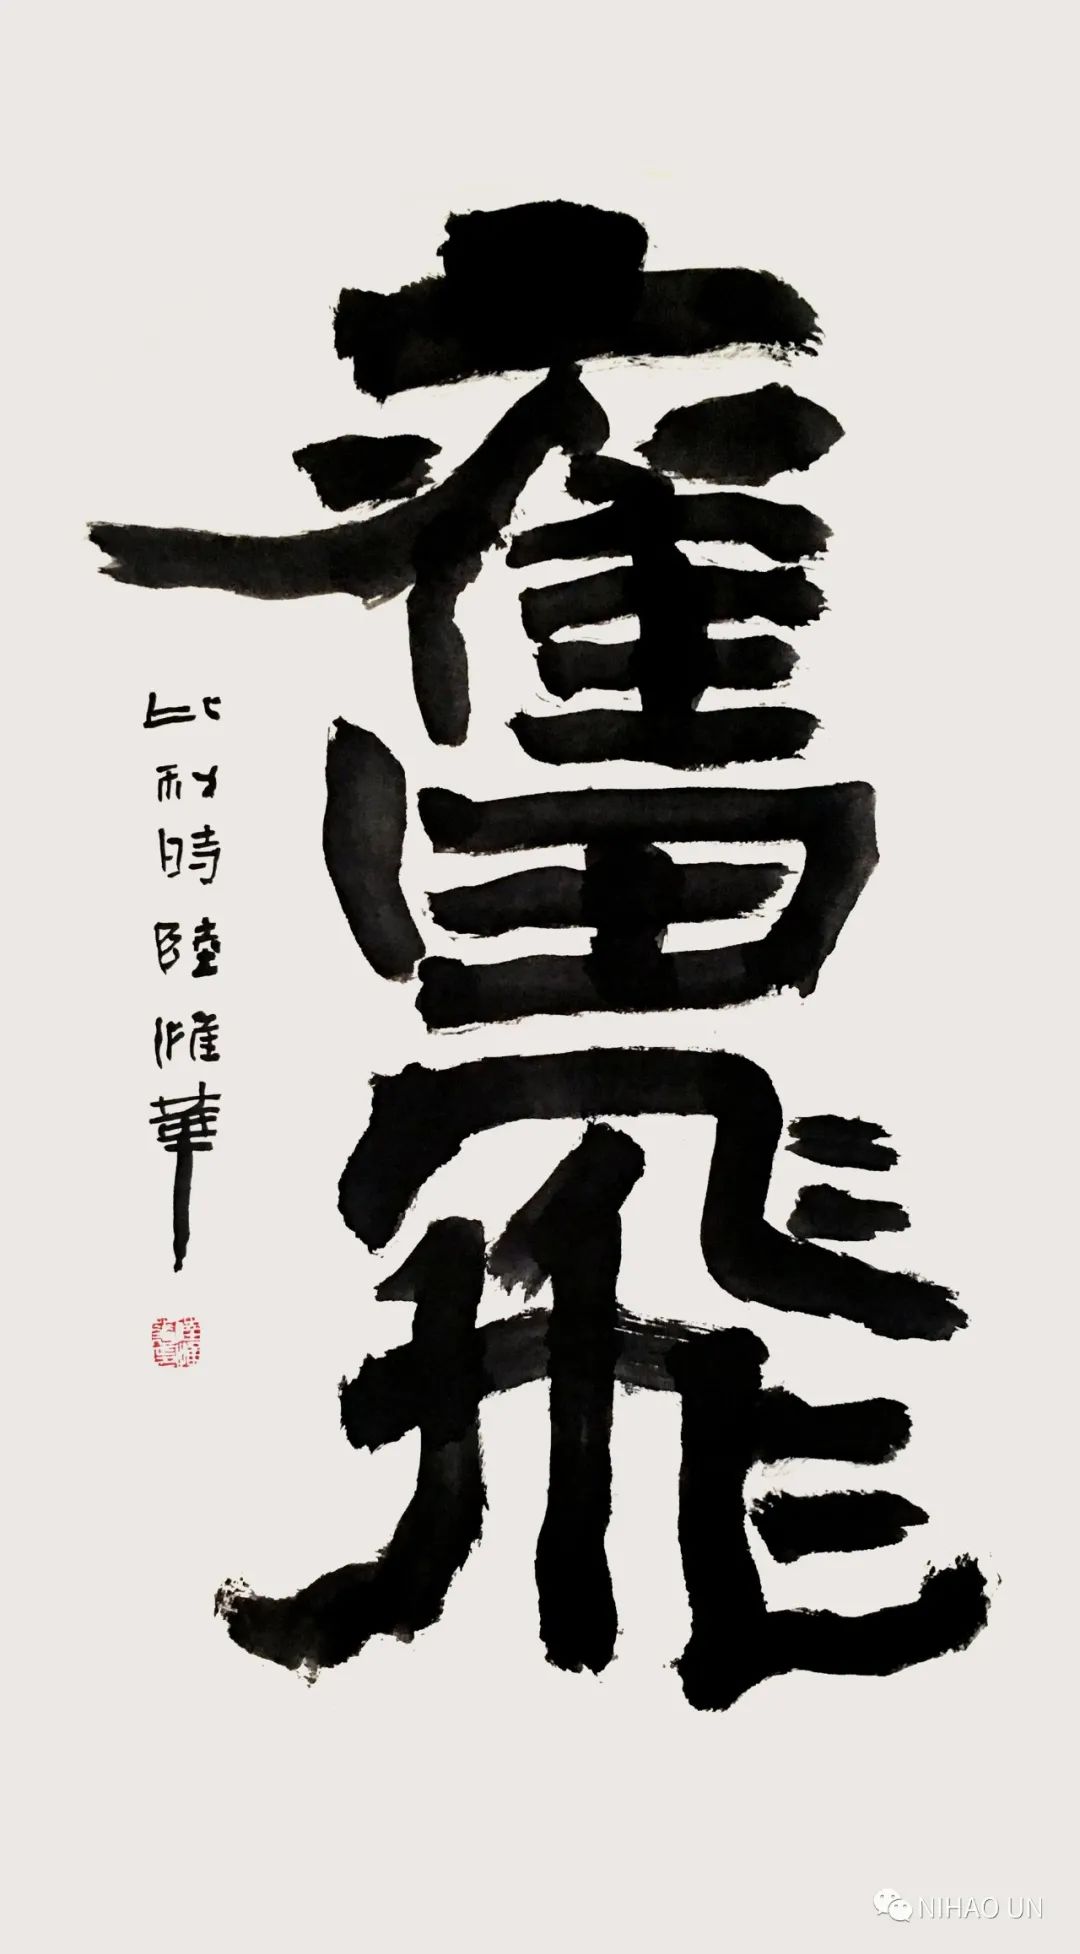 奮飛
比利時陸惟華
NIHAO UN